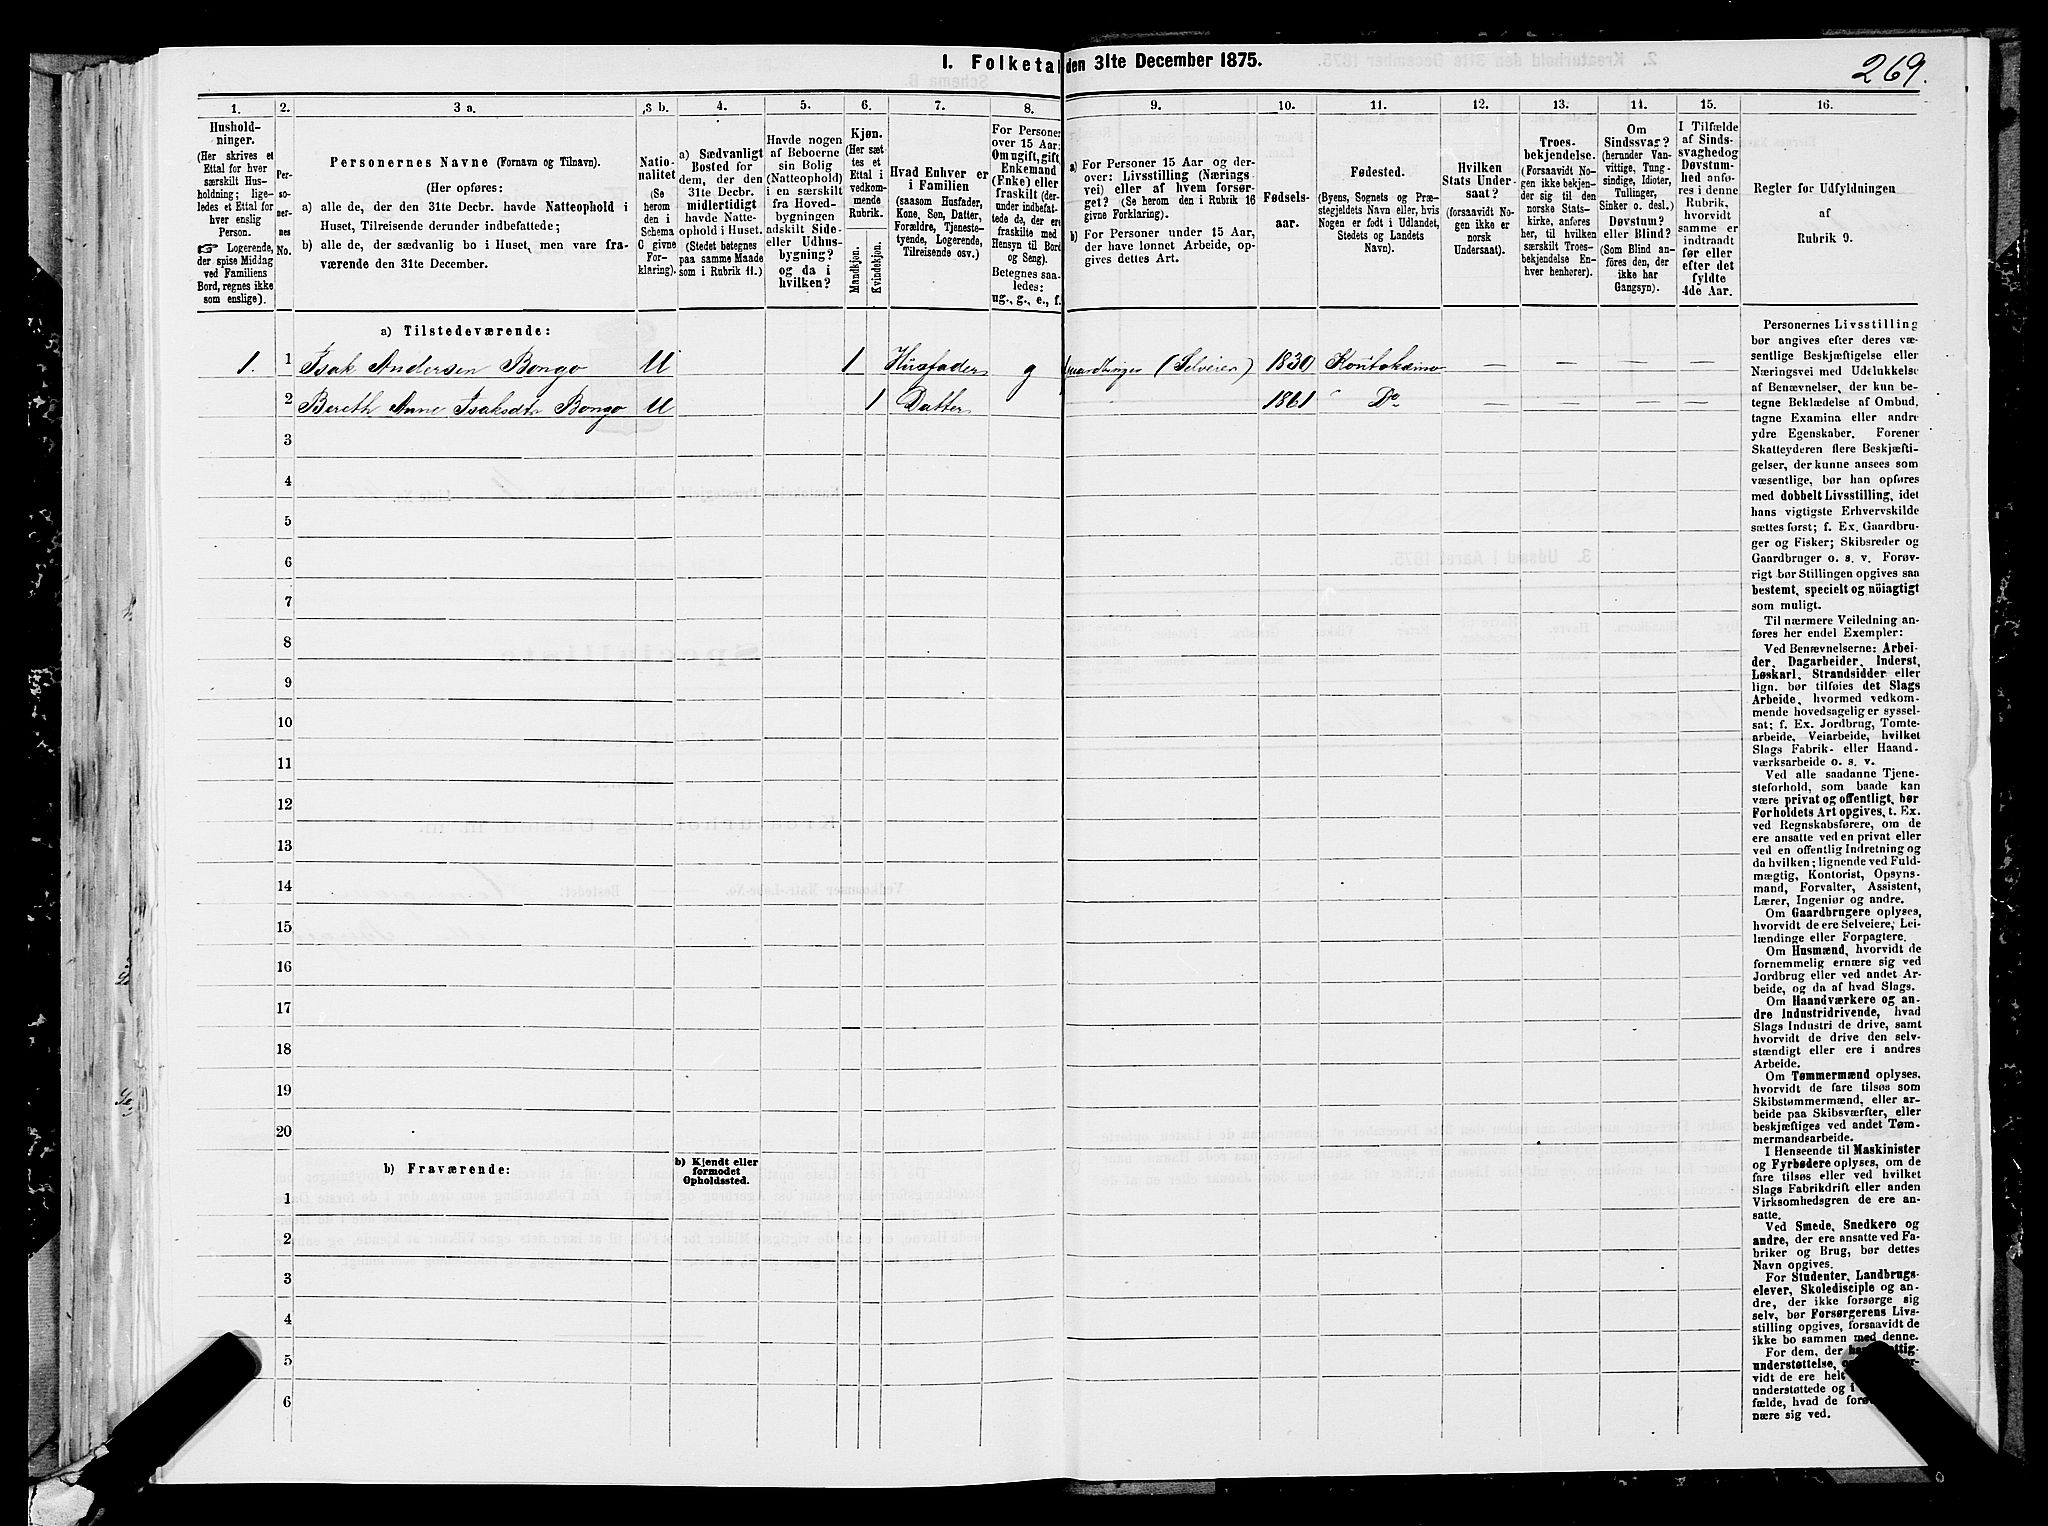 1. Folketal den 31te December 1875.
269.
1.
2.
3 a.
3 b.
4.
5.
6.
7.
8.
9.
10.
11.
12.
13.
14.
15.
16.
Hushold-
ninger.
(Her skrives et
Ettal for hver
særskilt Hus-
holdning; lige-
ledes et Ettal for
hver enslig
Person.
☞ Logerende,
der spise Middag
ved Familiens
Bord, regnes ikke
som enslige).
Per-
so-
ner-
nes
No.
Personernes Navne (Fornavn og Tilnavn).
(Her opføres:
a) alle de, der den 31te Decbr. havde Natteophold i
Huset, Tilreisende derunder indbefattede;
b) alle de, der sædvanlig bo i Huset, men vare fra-
værende den 31te December.
Natio-
nalitet
(Se
herom
den i
Schema
C givne
For-
klaring).
a) Sædvanligt
Bosted for
dem, der den
31te Decbr.
midlertidigt
havde Natte-
ophold i Huset.
(Stedet betegnes
paa samme Maade
som i Rubrik 11.)
Havde nogen
af Beboerne
sin Bolig
(Natteophold)
i en særskilt
fra Hoved-
bygningen
adskilt Side-
eller Udhus-
bygning?
og da i
hvilken?
Kjøn.
(Her sæt-
tes et
Ettal i
vedkom-
mende
Rubrik.
Mandkjøn.
Kvindekjøn.
Hvad Enhver er
i Familien
(saasom Husfader,
Kone, Søn, Datter,
Forældre, Tjeneste-
tyende, Logerende,
Tilreisende osv.)
For Personer
over 15 Aar:
Om ugift, gift,
Enkemand
(Enke) eller
fraskilt (der-
under indbefat-
tede de, der ere
fraskilte med
Hensyn til Bord
og Seng).
Betegnes saa-
ledes:
ug., g., e., f.
a) For Personer 15 Aar og der-
over: Livsstilling (Nærings-
vei) eller af hvem forsør-
get? (Se herom den i Rubrik 16
givne Forklaring).
b) For Personer under 15 Aar,
der have lønnet Arbeide, op-
gives dettes Art.
Fødsels-
aar.
Fødested.
(Byens, Sognets og Præ-
stegjeldets Navn eller, hvis
Nogen er født i Udlandet,
Stedets og Landets
Navn).
Hvilken
Stats Under-
saat?
(forsaavidt No-
gen ikke er
norsk
Undersaat).
Troes-
bekjendelse.
(Forsaavidt No-
gen ikke bekjen-
der sig til den
norske Stats-
kirke, anføres
her, til hvilken
særskilt Troes-
bekjendelse En-
hver henhører).
Om
Sindssvag?
(herunder Van-
vittige, Tung-
sindige, Idioter,
Tullinger,
Sinker o. desl.)
Døvstum?
eller Blind?
(Som Blind an-
føres den, der
ikke har
Gangsyn).
I Tilfælde
af Sinds-
svaghed og
Døvstum-
hed anfø-
res i denne
Rubrik,
hvorvidt
samme er
indtraadt
før eller
efter det
fyldte
4de Aar.
Regler for Udfyldningen
af
Rubrik 9.
a) Tilstedeværende:
1. 1 Isak Andersen Bongo U 1 Husfader g Gaardbruger (Selveier) 1830 Koutokeino — — — —
2 Bereth Anne Isaksdtr Bongo U 1 Datter 1861 Do — — — —
3
4
5
6
7
8
9
10
11
12
13
14
15
16
17
18
19
20
b) Fraværende:
b) Kjendt eller
formodet
Opholdssted.
1
2
3
4
5
6
Personernes Livsstilling
bør angives efter deres væ-
sentlige Beskjæftigelse eller
Næringsvei med Udelukkelse
af Benævnelser, der kun be-
tegne Beklædelse af Ombud,
tagne Examina eller andre
ydre Egenskaber. Forener
Skatteyderen flere Beskjæfti-
gelser, der kunne ansees som
væsentlige, bør han opføres
med dobbelt Livsstilling, idet
hans vigtigste Erhvervskilde
sættes først; f. Ex. Gaardbru-
ger og Fisker; Skibsreder og
Gaardbruger o. s. v. Forøv-
rigt bør Stillingen opgives saa
bestemt, specielt og nöiagtigt
som muligt.
Til nærmere Veiledning an-
føres her endel Exempler:
Ved Benævnelserne: Arbei-
der, Dagarbeider, Inderst,
Løskarl, Strandsidder eller
lign. bør tilføies det Slags
Arbeide, hvormed vedkom-
mende hovedsagelig er syssel-
sat; f. Ex. Jordbrug, Tomte-
arbeide, Veiarbeide, hvilket
Slags Fabrik- eller Haand-
værksarbeide o. s. v.
Ved alle saadanne Tjene-
steforhold, som baade kan
være privat og offentligt, bør
Forholdets Art opgives, t. Ex.
ved Regnskabsførere, om de
ere ansatte ved en privat eller
ved en offentlig Indretning og
da hvilken; lignende ved Fuld-
mægtig, Kontorist, Opsyns-
mand, Forvalter, Assistent,
Lærer, Ingeniør og andre.
Om Gaardbrugere oplyses,
hvorvidt de ere Selveiere, Lei-
lændinge eller Forpagtere.
Om Husmænd, hvorvidt de
fornemmelig ernære sig ved
Jordbrug eller ved andet Ar-
beide, og da af hvad Slags.
Om Haandværkere og an-
dre Industridrivende, hvad
Slags Industri de drive, samt
hvorvidt de drive den selv-
stændigt eller ere i andres
Arbeide.
Om Tømmermænd oplyses,
hvorvidt de fare tilsøs som
Skibstømmermænd, eller ar-
beide paa Skibsværfter, eller
beskjæftiges ved andet Tøm-
mermandsarbeide.
I Henseende til Maskinister
og Fyrbødere oplyses, om de
fare tilsøs eller ved hvilket
Slags Fabrikdrift eller anden
Virksomhedsgren de ere an-
satte.
Ved Smede, Snedkere og
andre, der ere ansatte ved Fa-
briker og Brug, bør dettes
Navn opgives.
For Studenter, Landbrugs-
elever, Skoledisciple og an-
dre, der ikke forsørge sig
selv, bør Forsørgerens Livs-
stilling opgives, forsaavidt de
ikke bo sammen med denne.
For dem, der
understøttelse,
vidt de ere helt
understøttede og i
fælde, hvad de
nære sig ved.